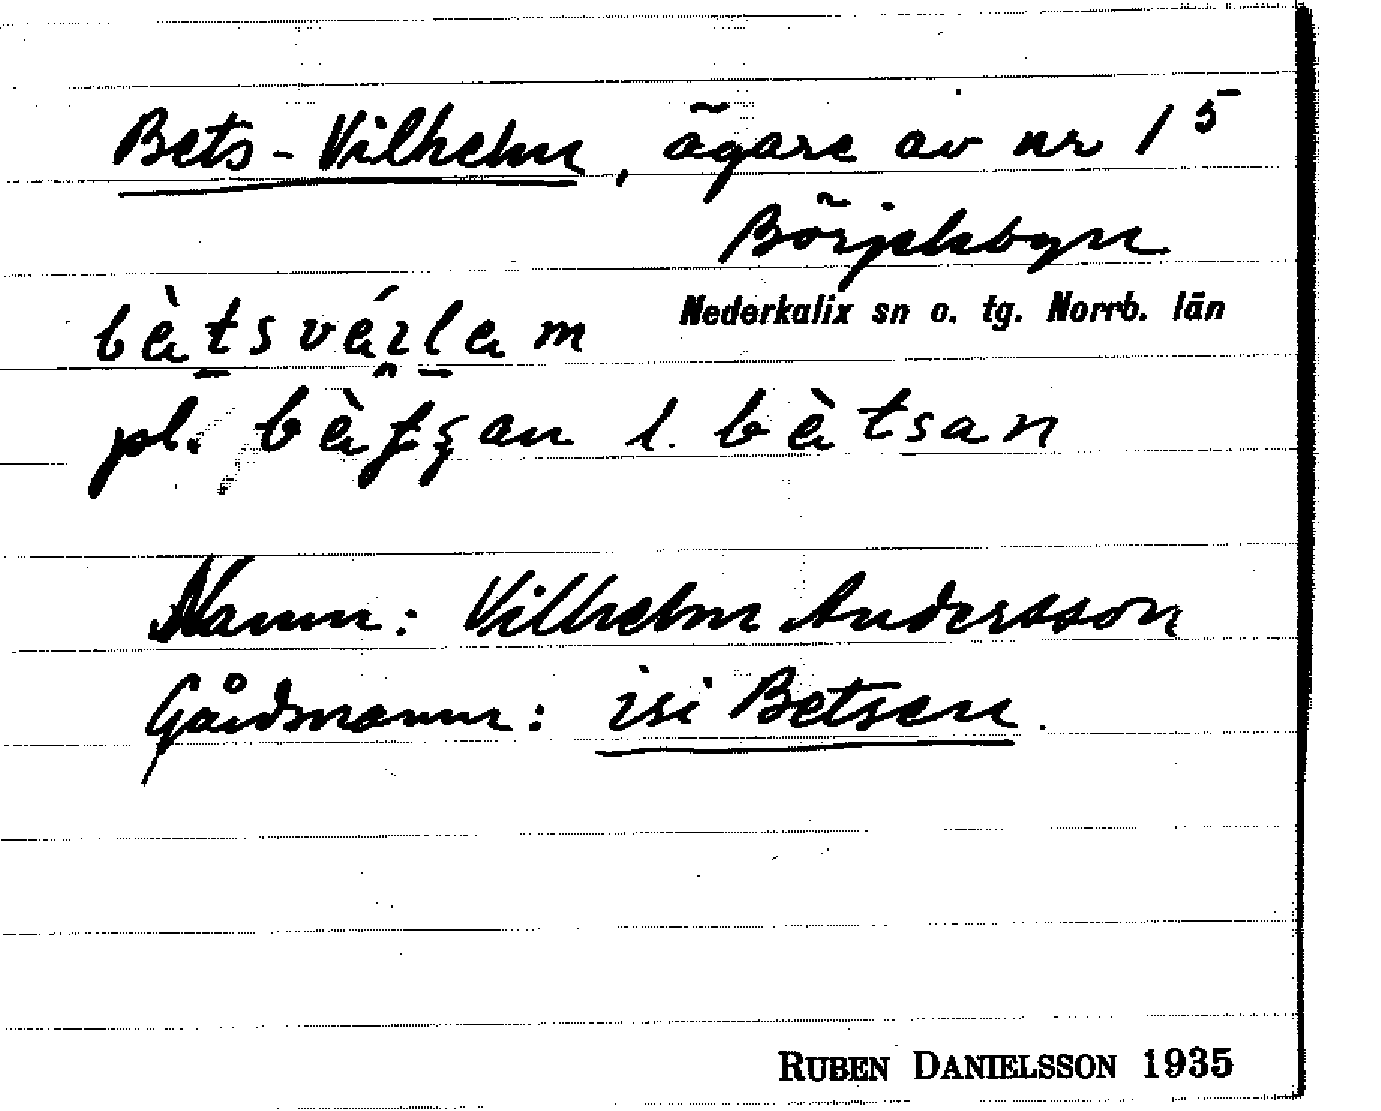 Bets-Vilhelm, ägare av nr 1⁵
Börjelsbyn
Nederkalix sn o. tg. Norrb. län
pl. l. bètsan
Namn: Vilhelm Andersson
Gårdsnamn: isi Betsen.
RUBEN DANIELSSON 1935